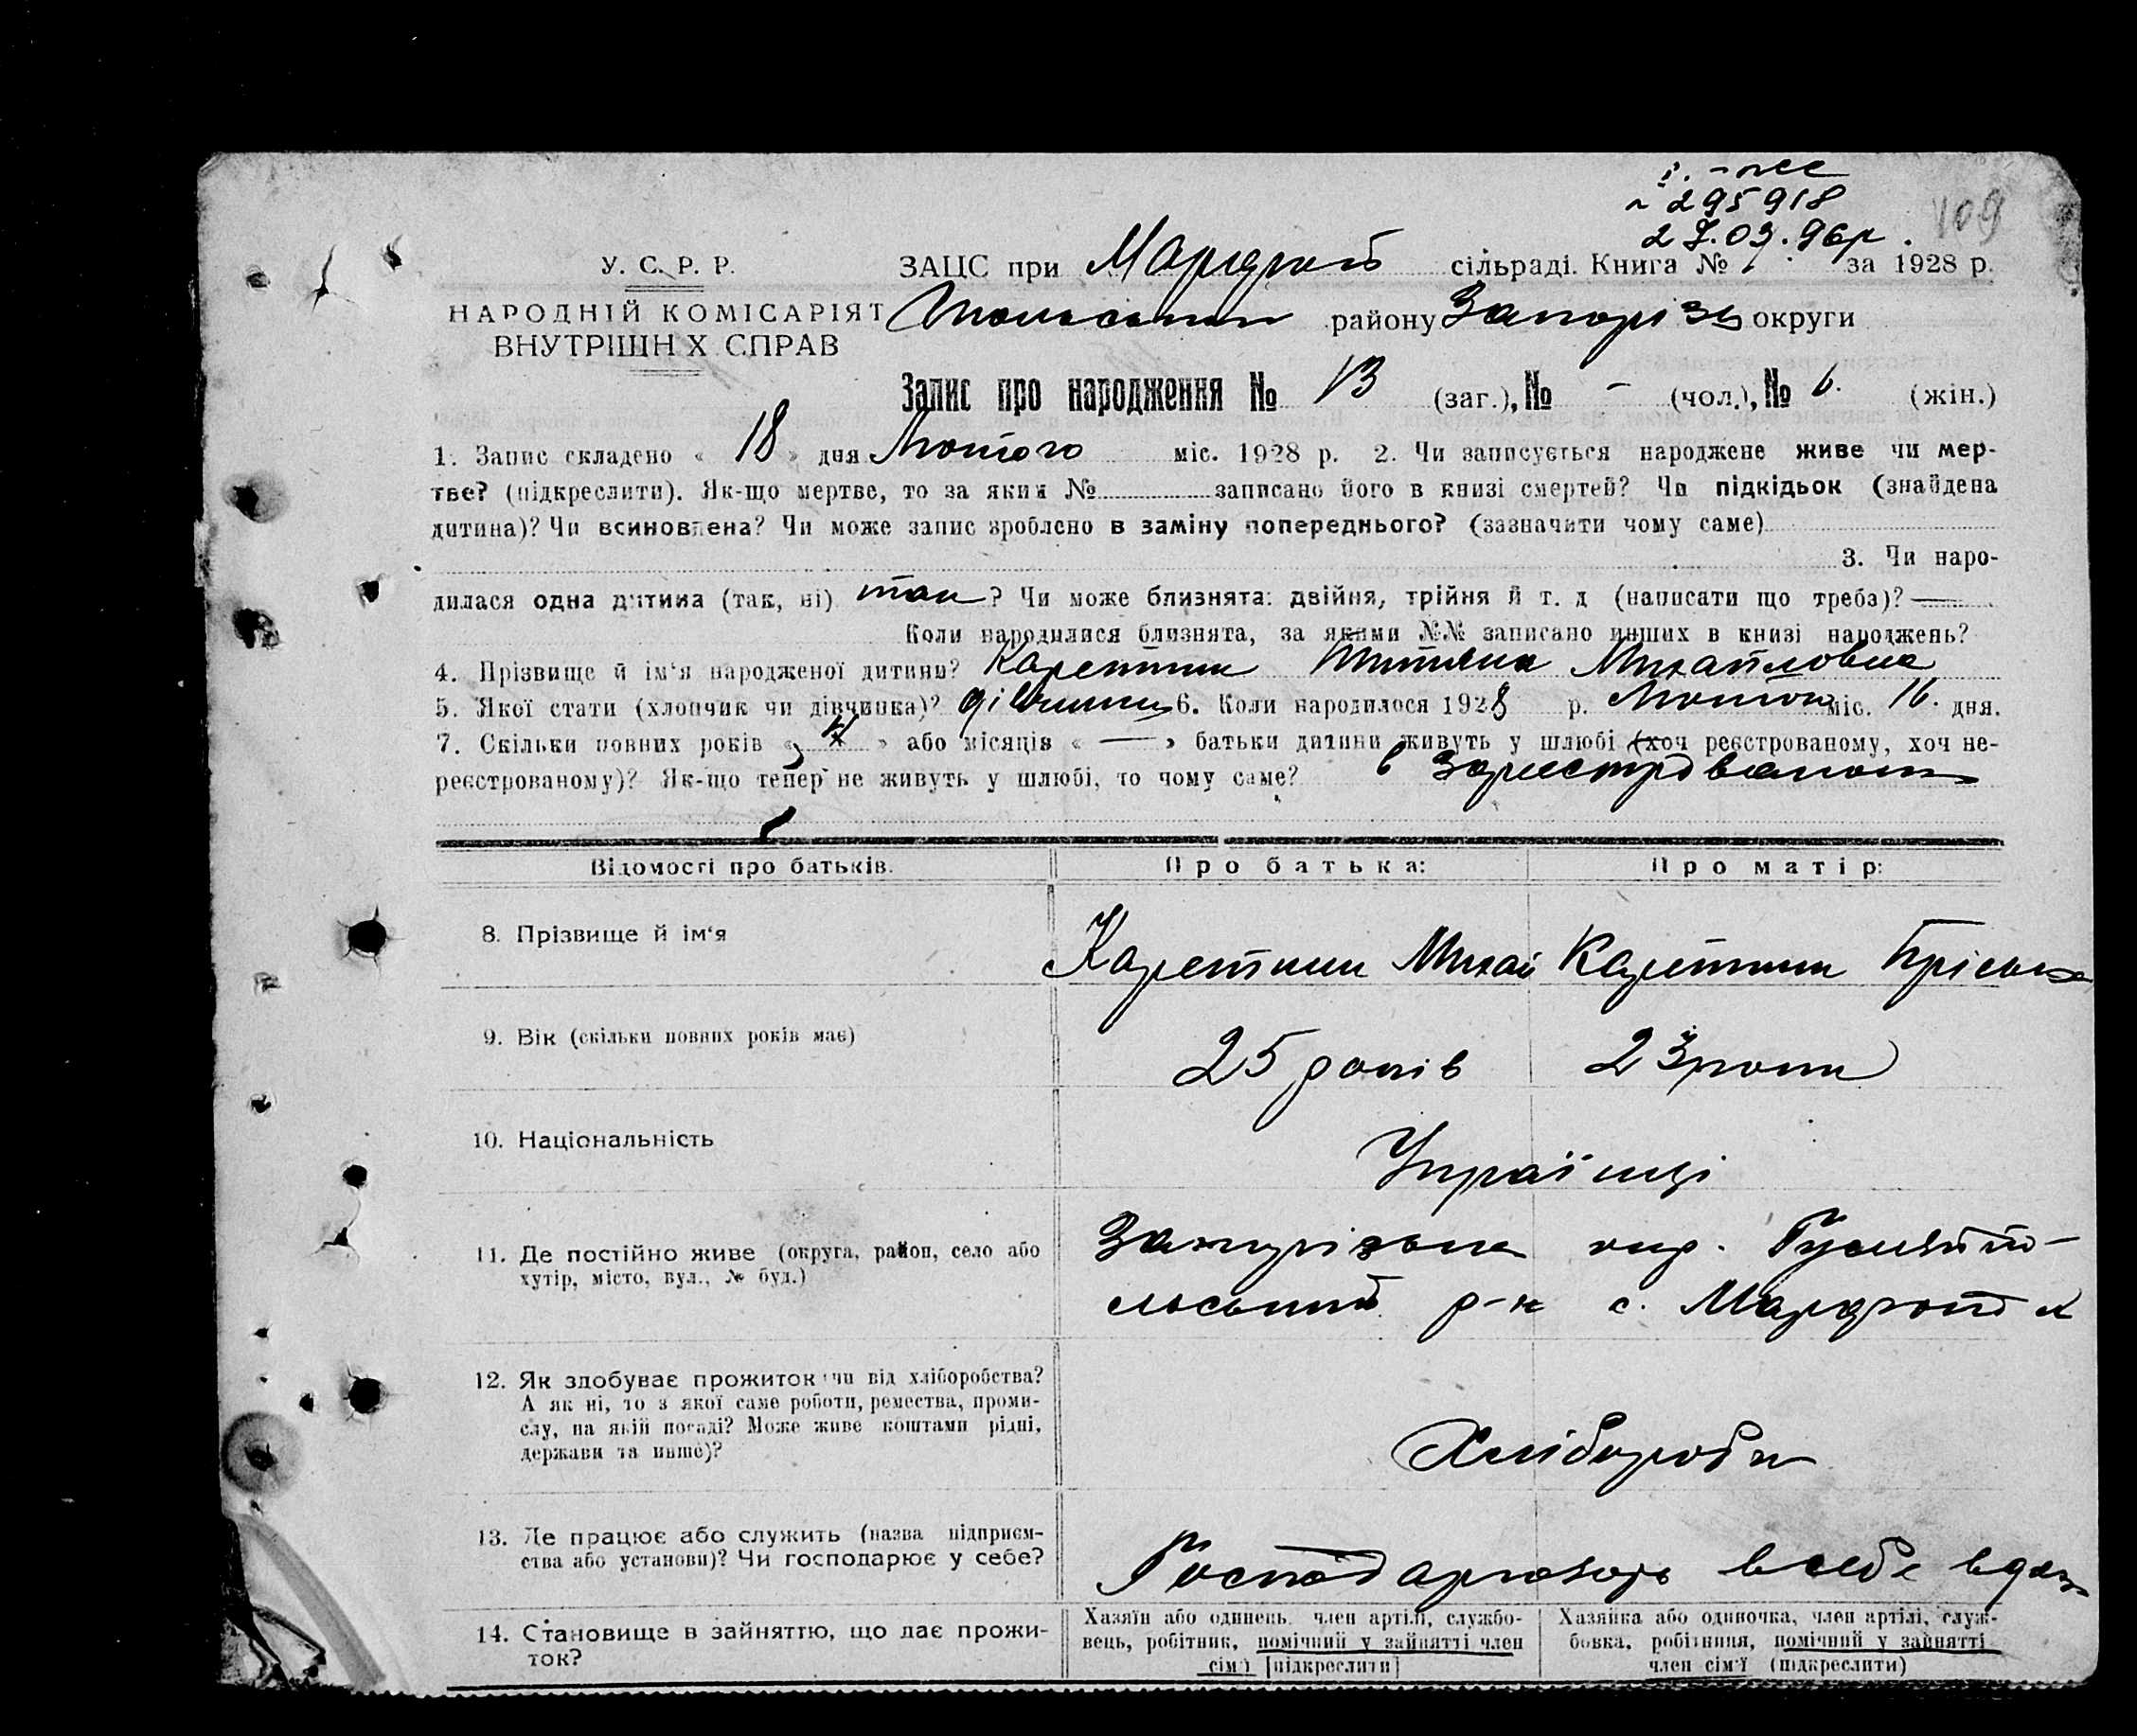 № 295918
27.03.96р.
109
У. С. Р. Р.
НАРОДНІЙ КОМІСАРІЯТ
ВНУТРІШН Х СПРАВ
ЗАЦС при сільраді. Книга № за 1928 р.
району Запорізь округи
Запис про народження № 13 (заг.), № – (чол.), № 6. (жін.)
1. Запис складено « 18 » дня Лютого міс. 1928 р. 2. Чи записується народжене живе чи мер-
тве? (підкреслити). Як-що мертве, то за яким № записано його в книзі смертей? Чи підкідьок (знайдена
дитина)? Чи всиновлена? Чи може запис зроблено в заміну попереднього? (зазначити чому саме)
3. Чи наро-
дилася одна дитина (так, ні) так ? Чи може близнята: двійня, трійня й т. д (написати що треба)? —
Коли народилися близнята, за якими №№ записано инших в книзі народжень?
4. Прізвище й ім‘я народженої дитини? Каретник Титяна Михайловна
5. Якої стати (хлопчик чи дівчинка)? дівчинка 6. Коли народилося 1928 р. Лютого міс. 16. дня.
7. Скільки повних років « » або місяців « — » батьки дитини живуть у шлюбі (хоч реєстрованому, хоч не-
реєстрованому)? Як-що тепер не живуть у шлюбі, то чому саме? в зареєстрованом
Відомості про батьків.
Про батька:
Про матір:
8. Прізвище й ім‘я
Каретник Михай
Каретник Пріська
9. Вік (скільки повних років має)
25 років
23 роки
10. Національність
Українці
11. Де постійно живе (округа, район, село або
хутір, місто, вул., № буд.)
Запорізька окр. Гуляйпо-
льський р-н с.
12. Як здобуває прожиток чи від хліборобства?
А як ні, то з якої саме роботи, ремества, проми-
слу, на якій посаді? Може живе коштами рідні,
держави та инше)?
Хлібороби
13. Де працює або служить (назва підприєм-
ства або установи)? Чи господарює у себе?
Господарюють в себе вдома
14. Становище в зайняттю, що дає прожи-
ток?
Хазяїн або одинець, член артілі, службо-
вець, робітник, помічний у зайнятті член
сім‘ї [підкреслити]
Хазяйка або одиночка, член артілі, служ-
бовка, робітниця, помічний у зайнятті
член сім‘ї (підкреслити)